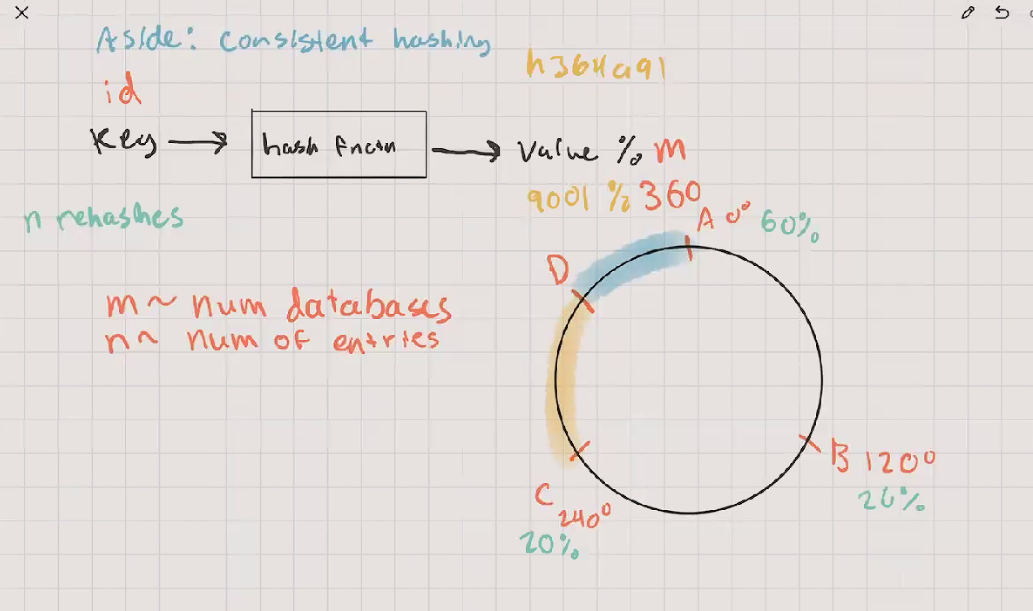 Aside: consistent hashing
h364a91
id
Key
hash fnctn
value % m
9001 % 360
n rehashes
A 0°
60%
D
m ~ num databases
n ~ num of entries
B 120°
20%
C
240°
20%